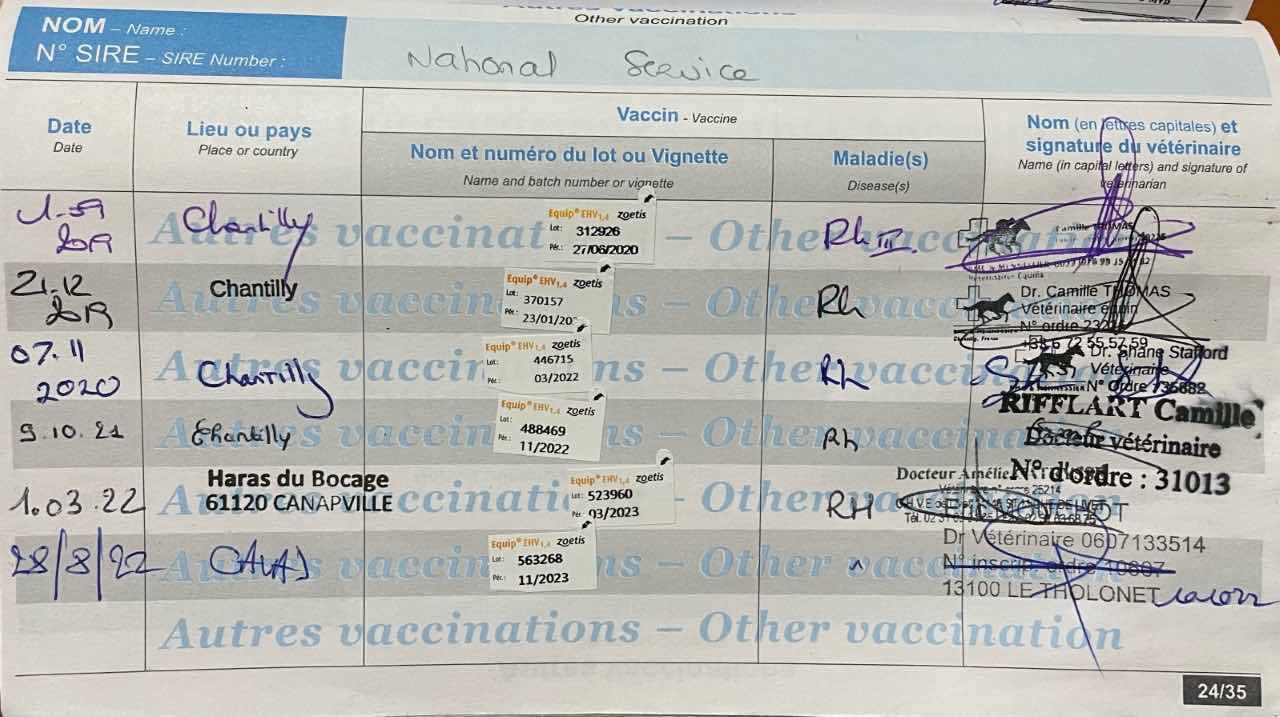 Other vaccination
NOM – Name :
N° SIRE – SIRE Number :
National Service
Date
Date
Lieu ou pays
Place or country
Vaccin - Vaccine
Nom et numéro du lot ou Vignette
Name and batch number or vignette
Maladie(s)
Disease(s)
Nom (en lettres capitales) et
signature du vétérinaire
Name (in capital letters) and signature of
veterinarian
2019
Chantilly
Equip® EHV1,4 zoetis
Lot: 312926
Pér.: 27/06/2020
Rh III
Camille THOMAS
21.12
2019
Chantilly
Equip® EHV1,4 zoetis
Lot: 370157
Pér.: 23/01/20
Rh
Dr. Camille THOMAS
Vétérinaire équin
N° ordre
+33 6 72 55 57 59
07.11
2020
Chantilly
Equip® EHV1,4 zoetis
Lot: 446715
Pér.: 03/2022
Rh
Dr. Shane Stafford
Vétérinaire
N° Ordre
9.10.21
Chantilly
Equip® EHV1,4 zoetis
Lot: 488469
Pér.: 11/2022
Rh
RIFFLART Camille
Docteur vétérinaire
N° d'ordre : 31013
1.03.22
Haras du Bocage
61120 CANAPVILLE
Equip® EHV1,4 zoetis
Lot: 523960
Pér.: 03/2023
RH
Docteur Amélie
28/8/22
Equip® EHV1,4 zoetis
Lot: 563268
Pér.: 11/2023
Dr Vétérinaire 0607133514
N° inscrip. ordre 10807
13100 LE THOLONET
Autres vaccinations – Other vaccination
24/35